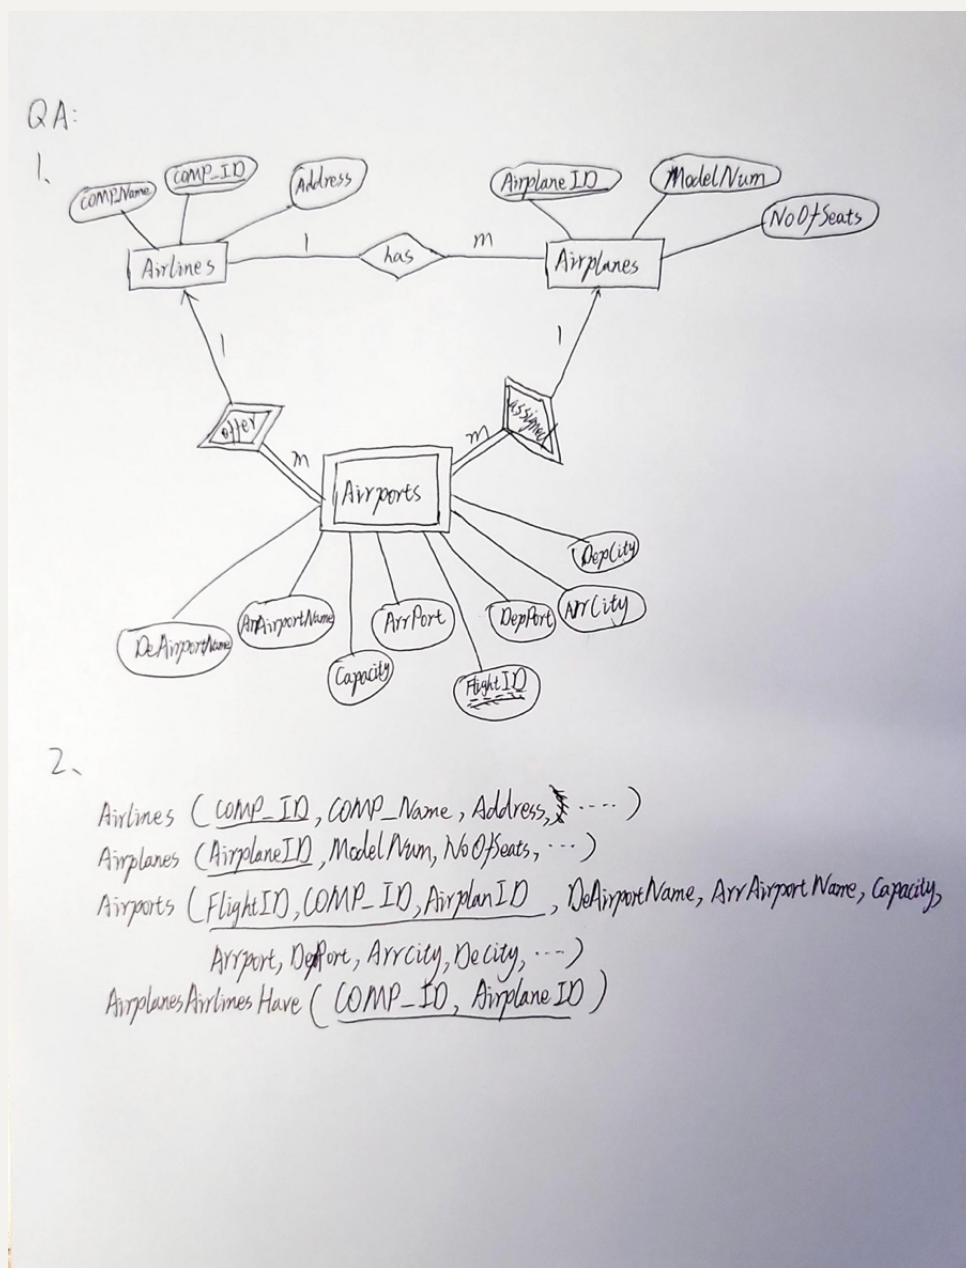 QA:
1、
COMP_Name
COMP_ID
Address
Airplane ID
ModelNum
NoOfSeats
Airlines
1
has
m
Airplanes
1
1
offer
m
m
assigned
Airports
DepCity
ArrCity
DepPort
ArrPort
ArrAirportName
DeAirportName
Capacity
FlightID
2、
Airlines (COMP_ID, COMP_Name, Address, ....)
Airplanes (AirplaneID, ModelNum, NoOfSeats, ...)
Airports (FlightID, COMP_ID, AirplanID, DeAirportName, ArrAirportName, Capacity,
Arrport, DepPort, ArrCity, DeCity, ....)
AirplanesAirlinesHave (COMP_ID, AirplaneID)